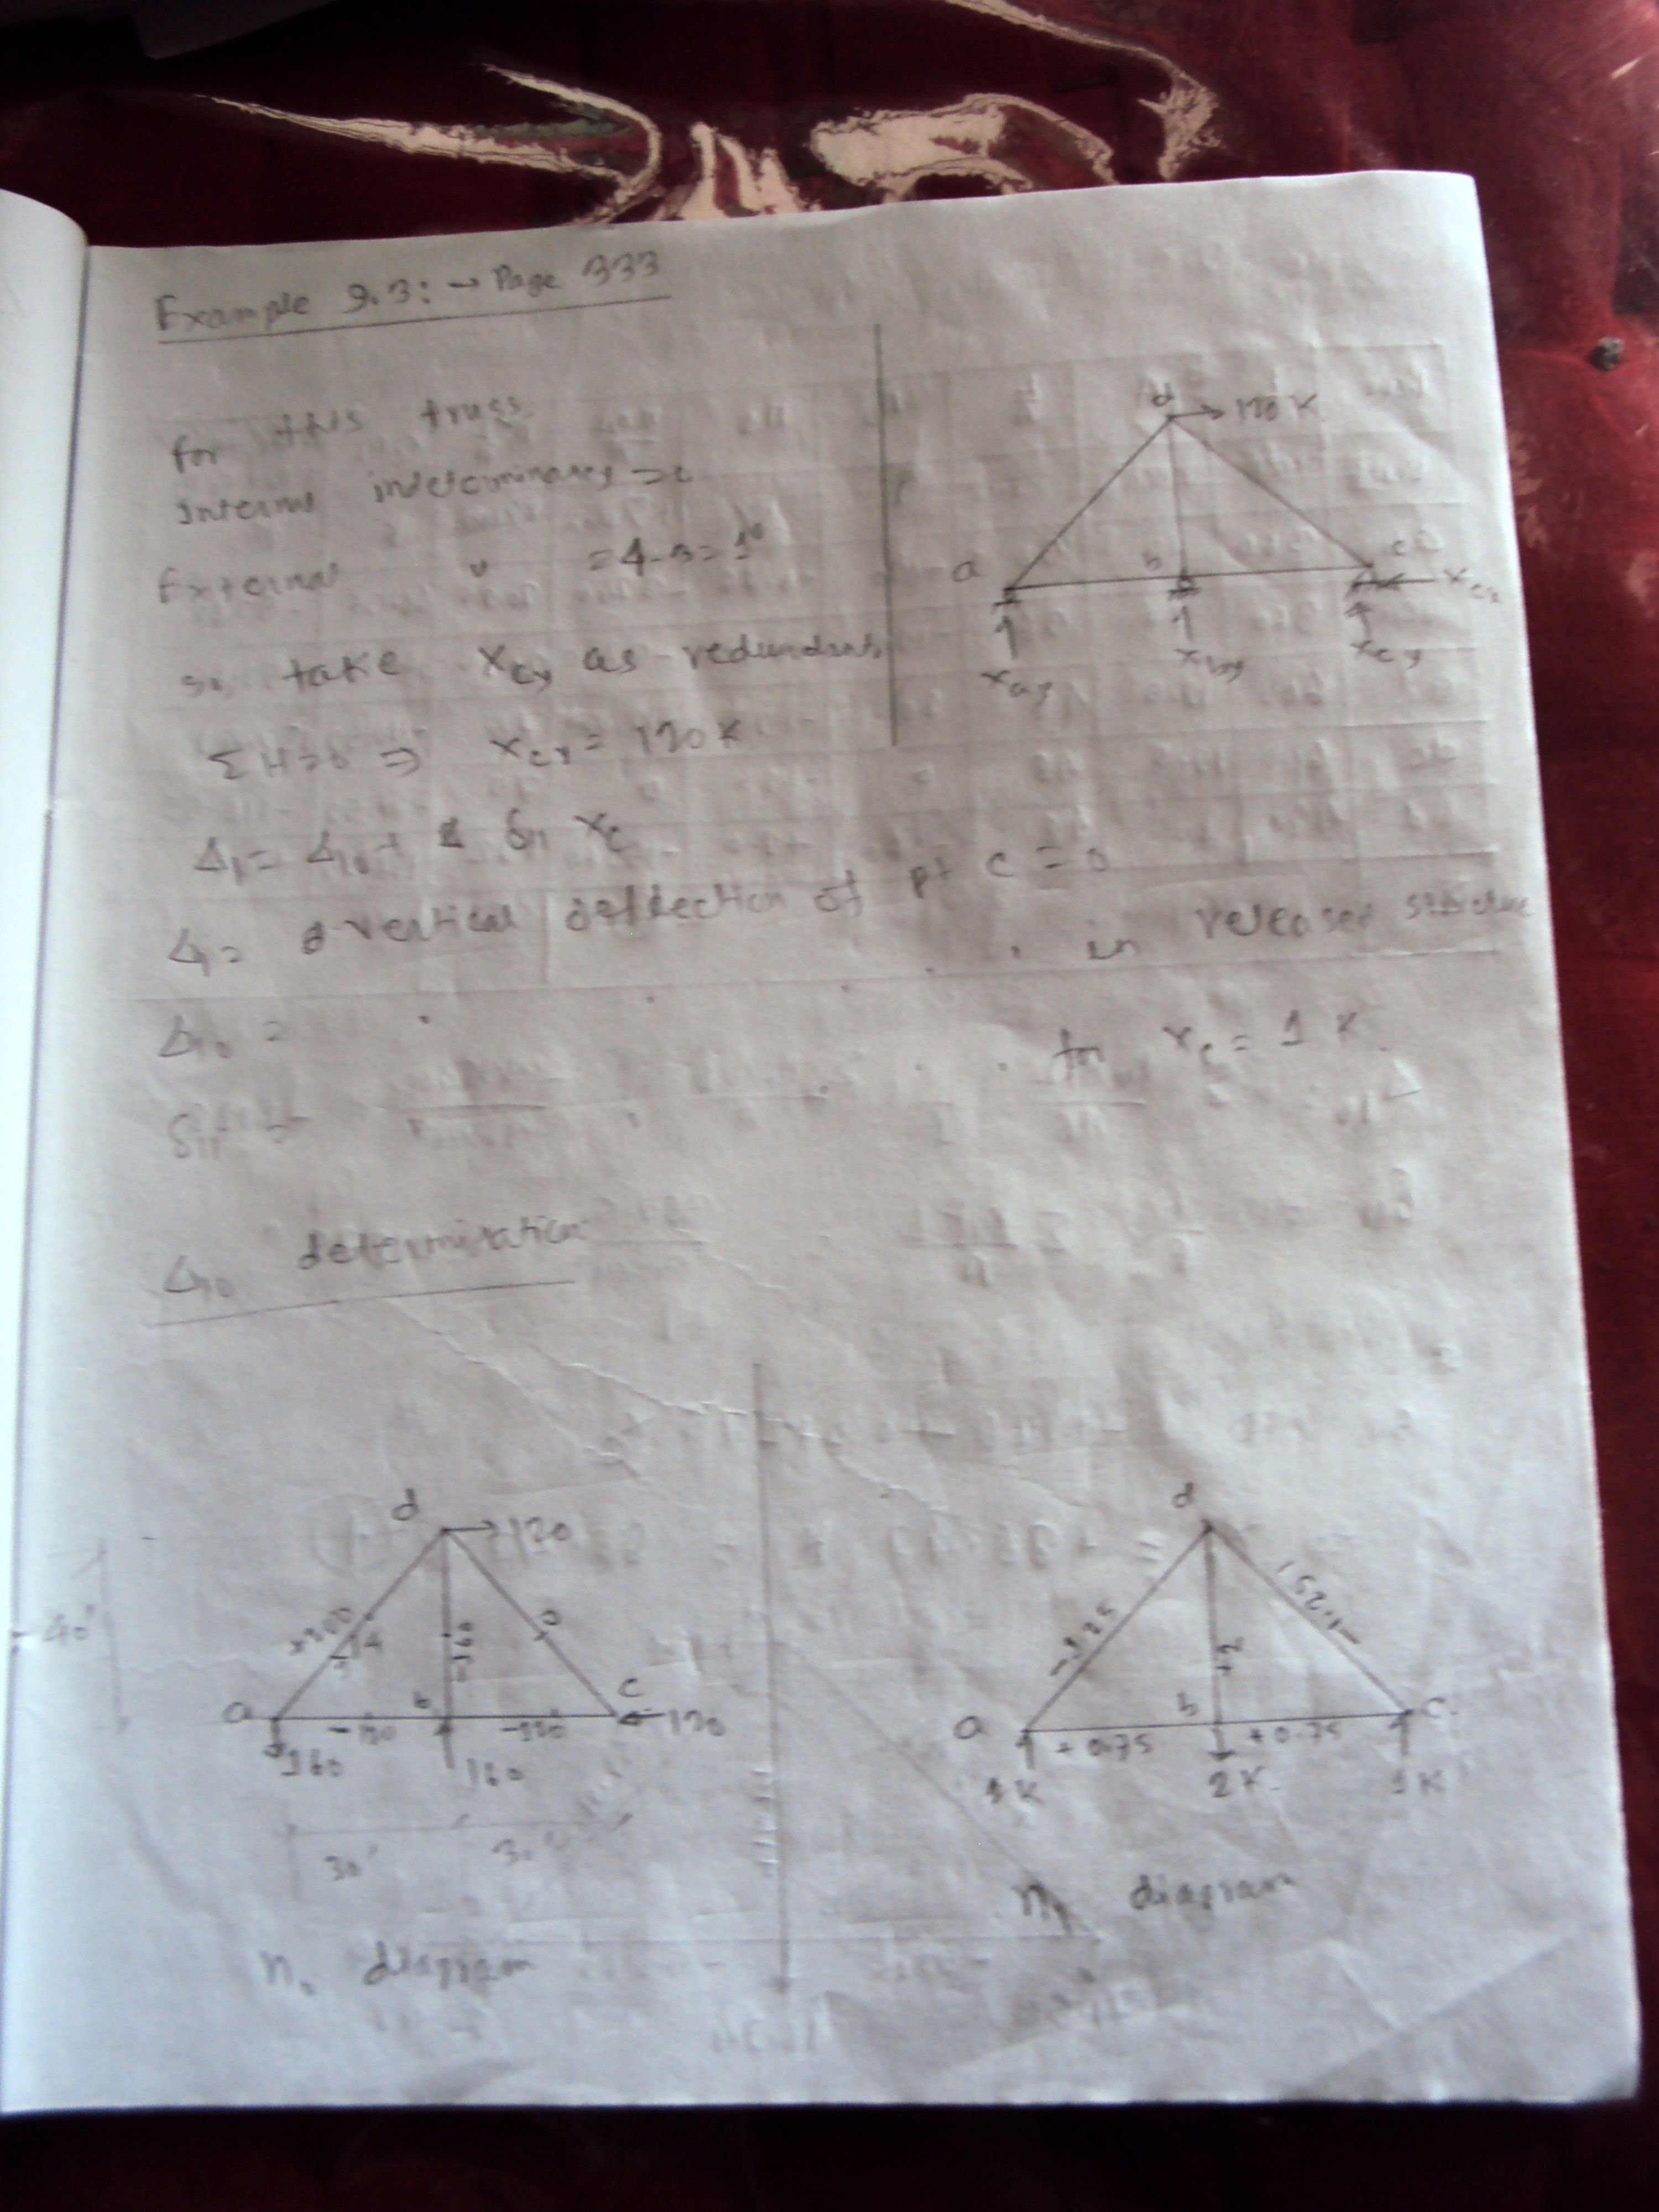 Example 9.3: → Page 333
for this truss.
Internal indeterminacy = 0
External " = 4-3 = 1°
so take Xcy as redundant.
ΣH=0 ⇒ Xcx = 120 K
Δ1 = Δ10 + δ11 Xc
Δ1 = vertical deflection of pt c = 0
Δ10 = " in released structure
δ11 = for Xc = 1 K
Δ10 determination
d → 120 K
a b c Xcx
Xay Xby Xcy
d → 120
+200 -160 0
40'
a b c ← 120
-120 -120
160 160
30' 30'
n0 diagram
d
-1.25 +2 -1.25
a b c
+0.75 +0.75
1K 2K 1K
n1 diagram